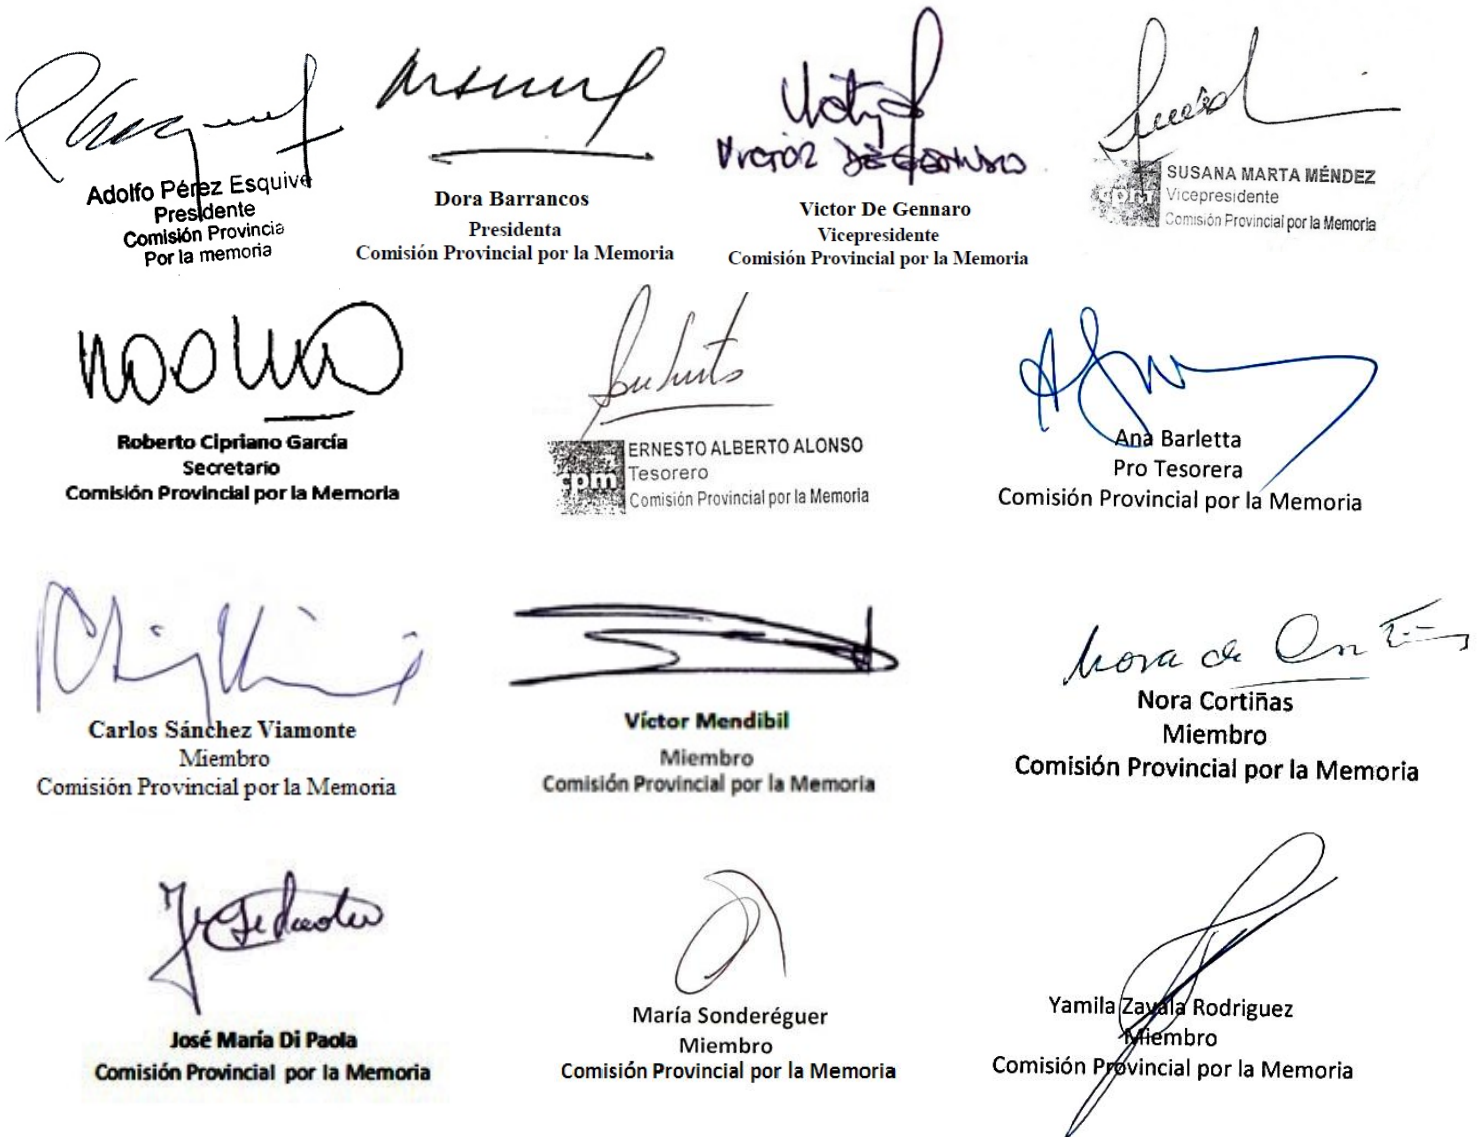 Adolfo Pérez Esquive
Presidente
Comisión Provincia
Por la memoria
Dora Barrancos
Presidenta
Comisión Provincial por la Memoria
VICTOR DE GENNARO
Victor De Gennaro
Vicepresidente
Comisión Provincial por la Memoria
cpm
SUSANA MARTA MÉNDEZ
Vicepresidente
Comisión Provincial por la Memoria
Roberto Cipriano García
Secretario
Comisión Provincial por la Memoria
cpm
ERNESTO ALBERTO ALONSO
Tesorero
Comisión Provincial por la Memoria
Ana Barletta
Pro Tesorera
Comisión Provincial por la Memoria
Carlos Sánchez Viamonte
Miembro
Comisión Provincial por la Memoria
Víctor Mendibil
Miembro
Comisión Provincial por la Memoria
Nora de Cortiñas
Nora Cortiñas
Miembro
Comisión Provincial por la Memoria
José María Di Paola
Comisión Provincial por la Memoria
María Sonderéguer
Miembro
Comisión Provincial por la Memoria
Yamila Zavala Rodriguez
Miembro
Comisión Provincial por la Memoria